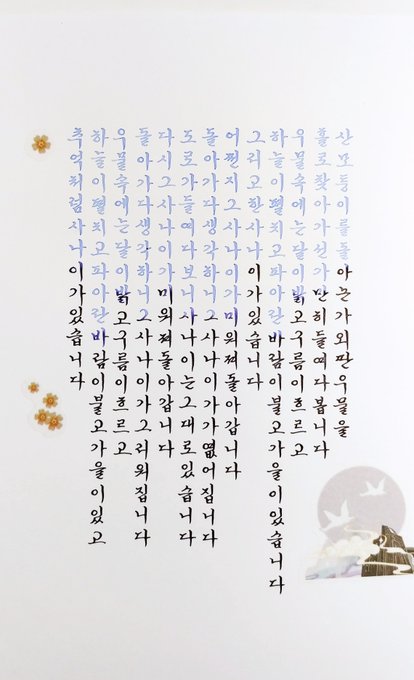 산모퉁이를돌아논가외딴우물을
홀로찾아가선가만히들여다봅니다
우물속에는달이밝고구름이흐르고
하늘이펼치고파아란바람이불고가을이있습니다
그리고한사나이가있습니다
어쩐지그사나이가미워져돌아갑니다
돌아가다생각하니그사나이가가엾어집니다
도로가들여다보니사나이는그대로있습니다
다시그사나이가미워져돌아갑니다
돌아가다생각하니그사나이가그리워집니다
우물속에는달이밝고구름이흐르고
하늘이펼치고파아란바람이불고가을이있고
추억처럼사나이가있습니다